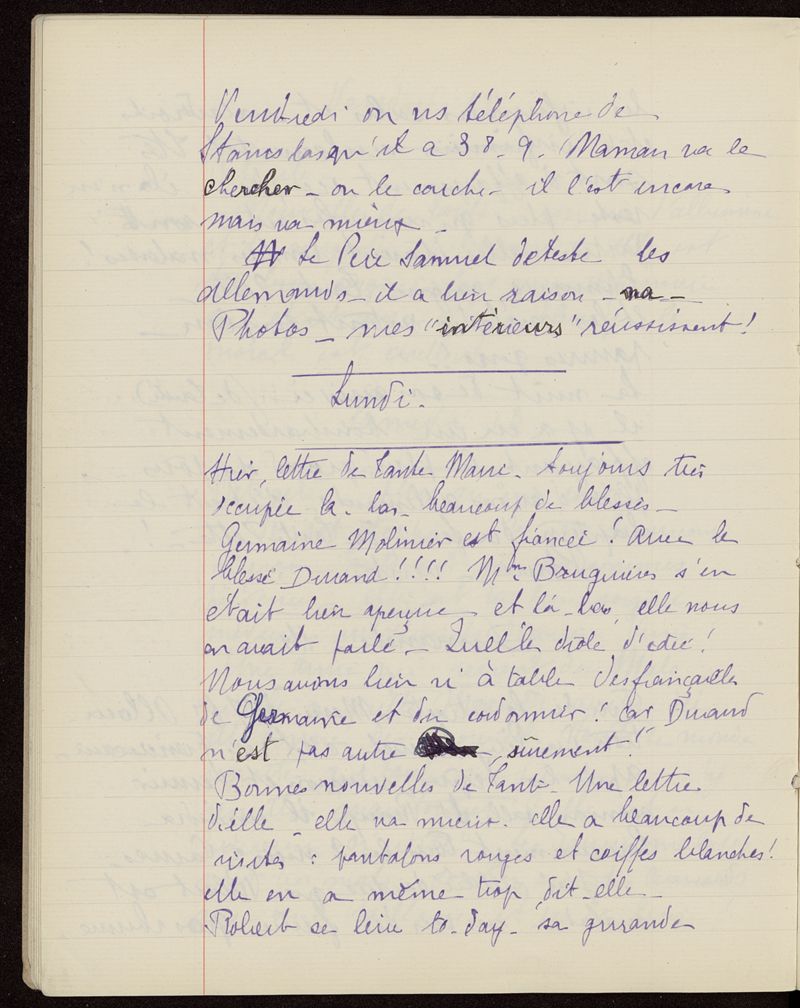 Vendredi on ns téléphone de
Stanislas qu'il a 38-9. Maman va le
chercher - on le couche - il l'est encore
mais va mieux -
Le Père Samuel déteste les
allemands - il a bien raison - na -
Photos - mes "intérieurs" réussissent !
Lundi -
Hier, lettre de Tante Marie - toujours très
occupée là-bas - beaucoup de blessés -
Germaine Molinier est fiancée ! Avec le
blessé Durand !!!! Mme Bruguières s'en
était bien aperçue - et là-bas, elle nous
en avait parlé - Quelle drôle d'idée !
Nous avons bien ri à table des fiançailles
de Germaine et du cordonnier ! Car Durand
n'est pas autre , sûrement !
Bonnes nouvelles de Tante - Une lettre
d'elle - elle va mieux - elle a beaucoup de
visites : pantalons rouges et coiffes blanches !
elle en a même trop, dit-elle -
Robert se lève to-day - sa grande